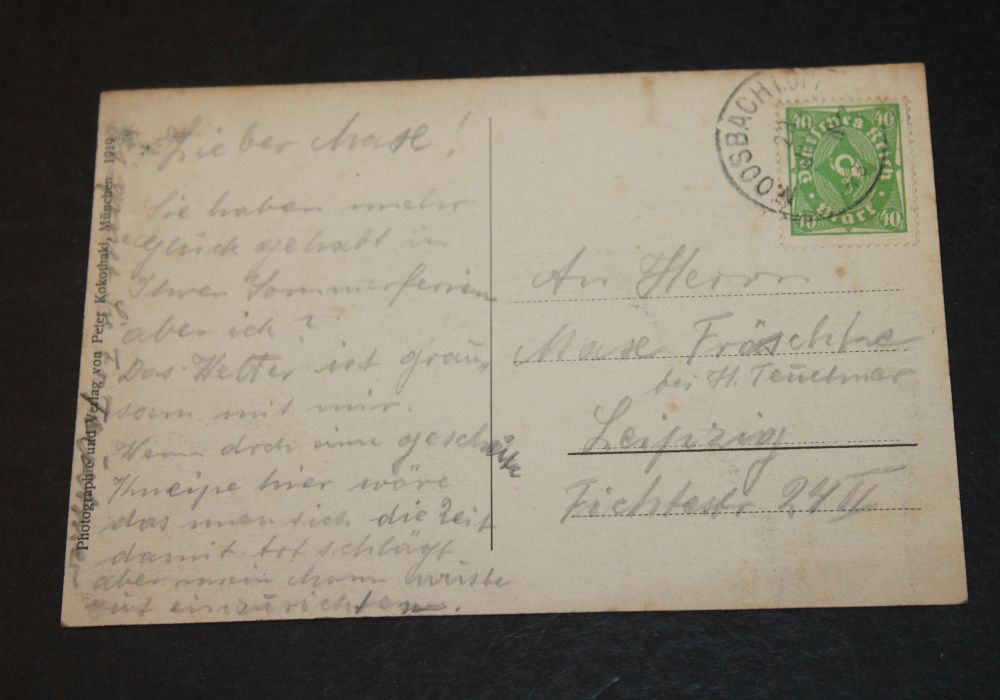 Photographie und Verlag von Peter Kokothaki, München 1919
Lieber Max!
Sie haben mehr
Glück gehabt in
Ihren Sommerferien
aber ich?
Das Wetter ist grau„
sam mit mir.
Wenn doch eine gescheite
Kneipe hier wäre
das man sich die Zeit
damit tot schlägt
aber mein
gut einzurichten.
MOOSBACH
40 40
Deutsches Reich
Mark
40 40
An Herrn
Max Fräschke
bei H. Teuchmer
Leipzig
Fichtestr 24 II